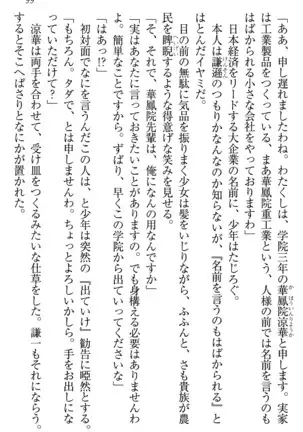 「ああ、申し遅れましたわね。わたくしは、学院三年の華鳳院涼華と申します。実家
は工業製品をつくっている、まあ華鳳院重工業という、人様の前では名前を言うのも
はばかられる小さな会社をやっておりますわ」
日本経済をリードする大企業の名前に、少年はたじろぐ。
本人は謙遜のつもりかなんなのか知らないが、『名前を言うのもはばかられる』と
はとんだイヤミだ。
目の前の無駄に気品のある美少女は髪をいじりながら、ふふんと、さも貴族が農
民を睥睨するような得意げな笑みを見せる。
「そ、それで、華鳳院先輩は、俺になんの用なんですか」
「実はあなたに言っておきたいことがありますの。でも身構える必要はありませんわ
よ。簡単なことですから。ずばり、早くこの学院から出ていってくださいな」
「はあっ!?」
初対面でなにを言うんだこの人は、と少年は突然の『出ていけ』勧告に唖然とする。
「もちろん、タダで、とは申しませんわ。ちょっとよろしいかしら。手をお出しにな
っていただけて?」
涼華は両手を合わせて、受け皿つくるみたいな仕草をした。謙一もそれにならう。
するとそこへばさりとなにかが置かれた。